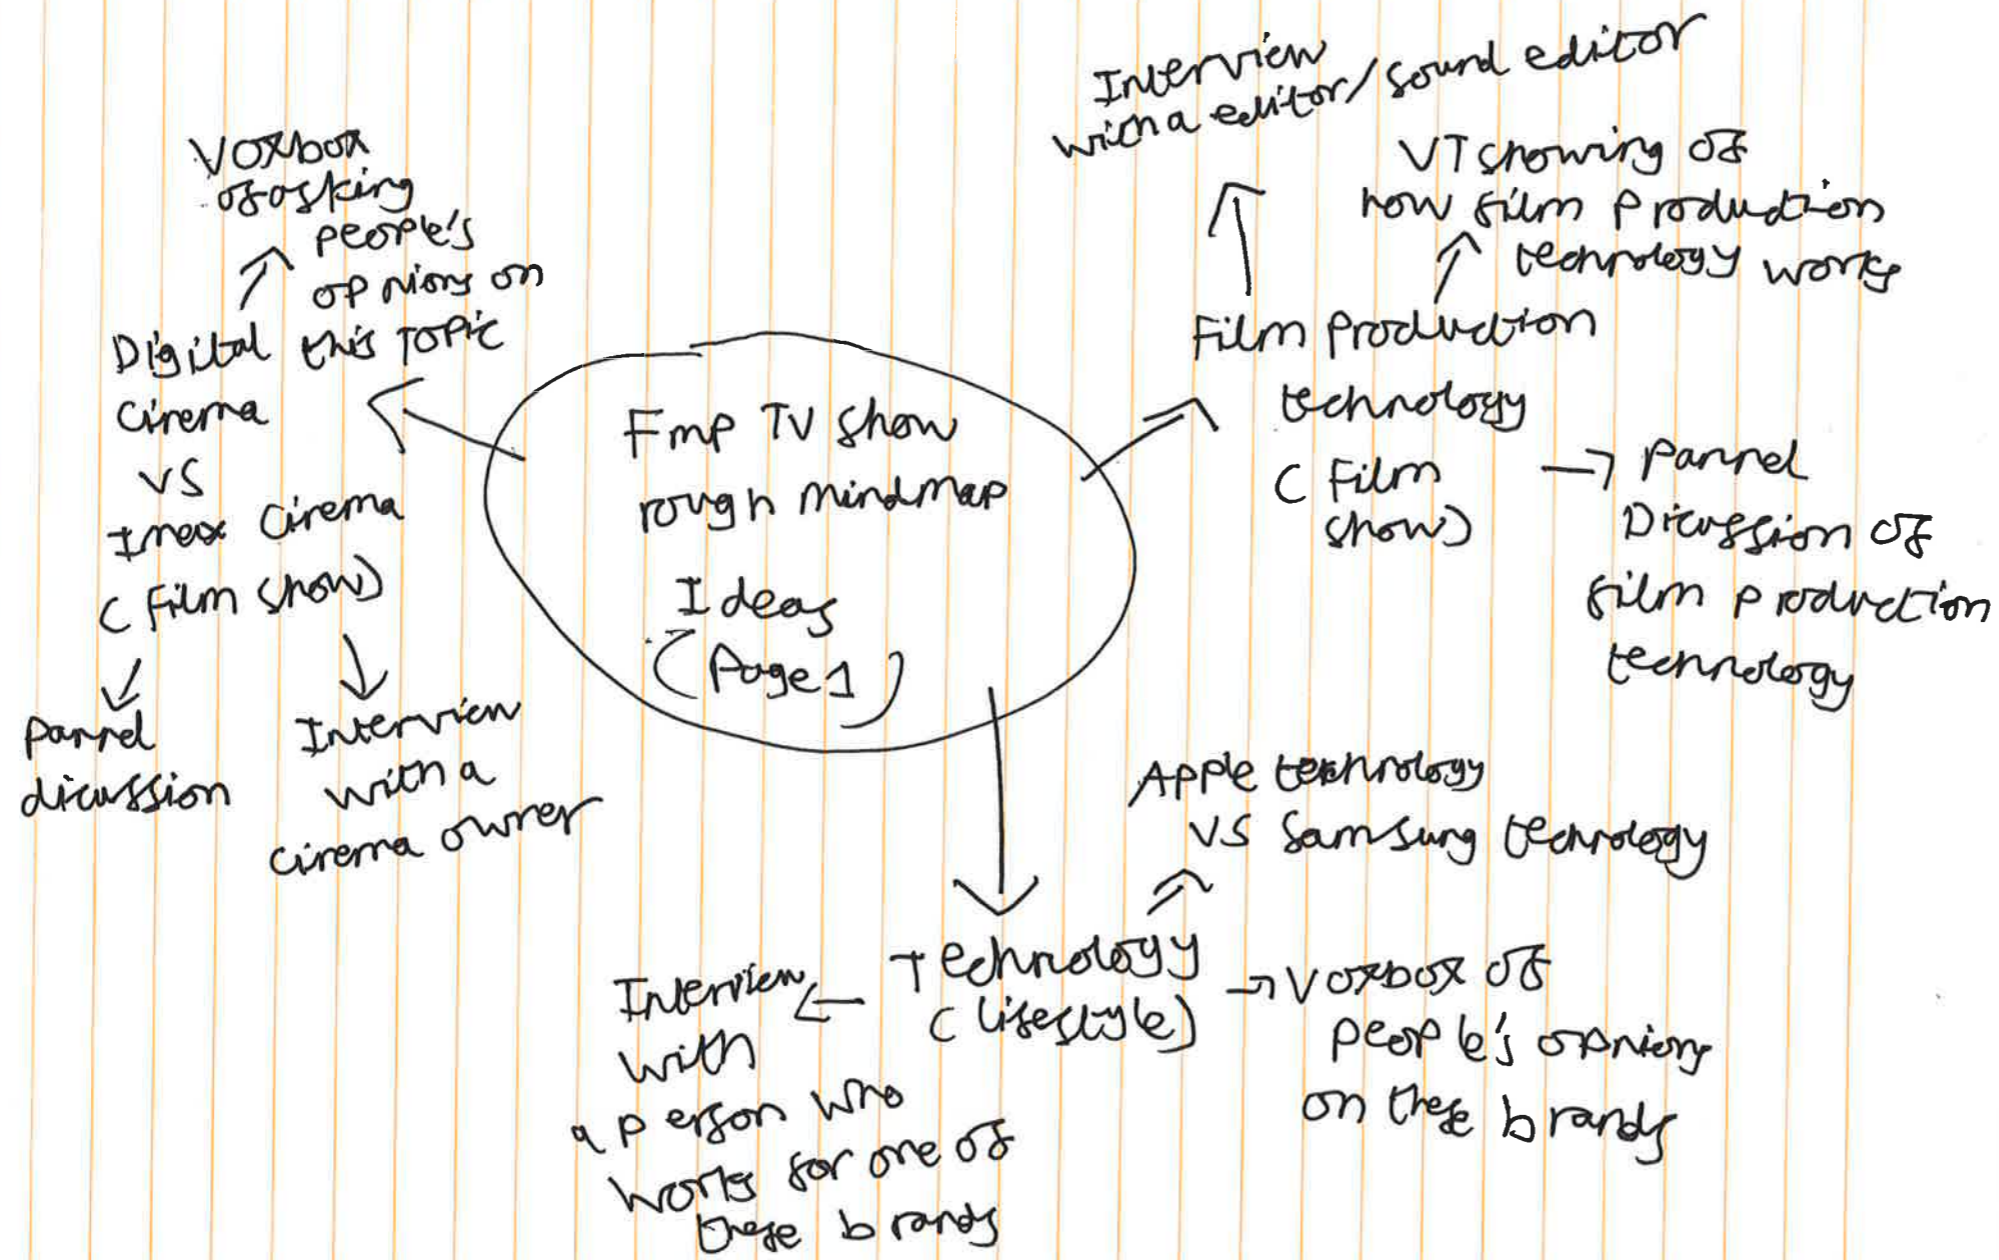 Fmp TV show
rough mindmap
Ideas
(Page 1)
Digital
cinema
vs
Imax cinema
(film show)
Voxbox
of asking
people's
opnions on
this topic
pannel
dicussion
Interview
with a
cinema owner
Film production
technology
(film
show)
Interview
with a editor/sound editor
VT showing of
how film production
technology works
pannel
Dicussion of
film production
technology
Technology
(lifestyle)
Apple technology
vs Samsung technology
Voxbox of
people's opnions
on these brands
Interview
with
a person who
works for one of
these brands